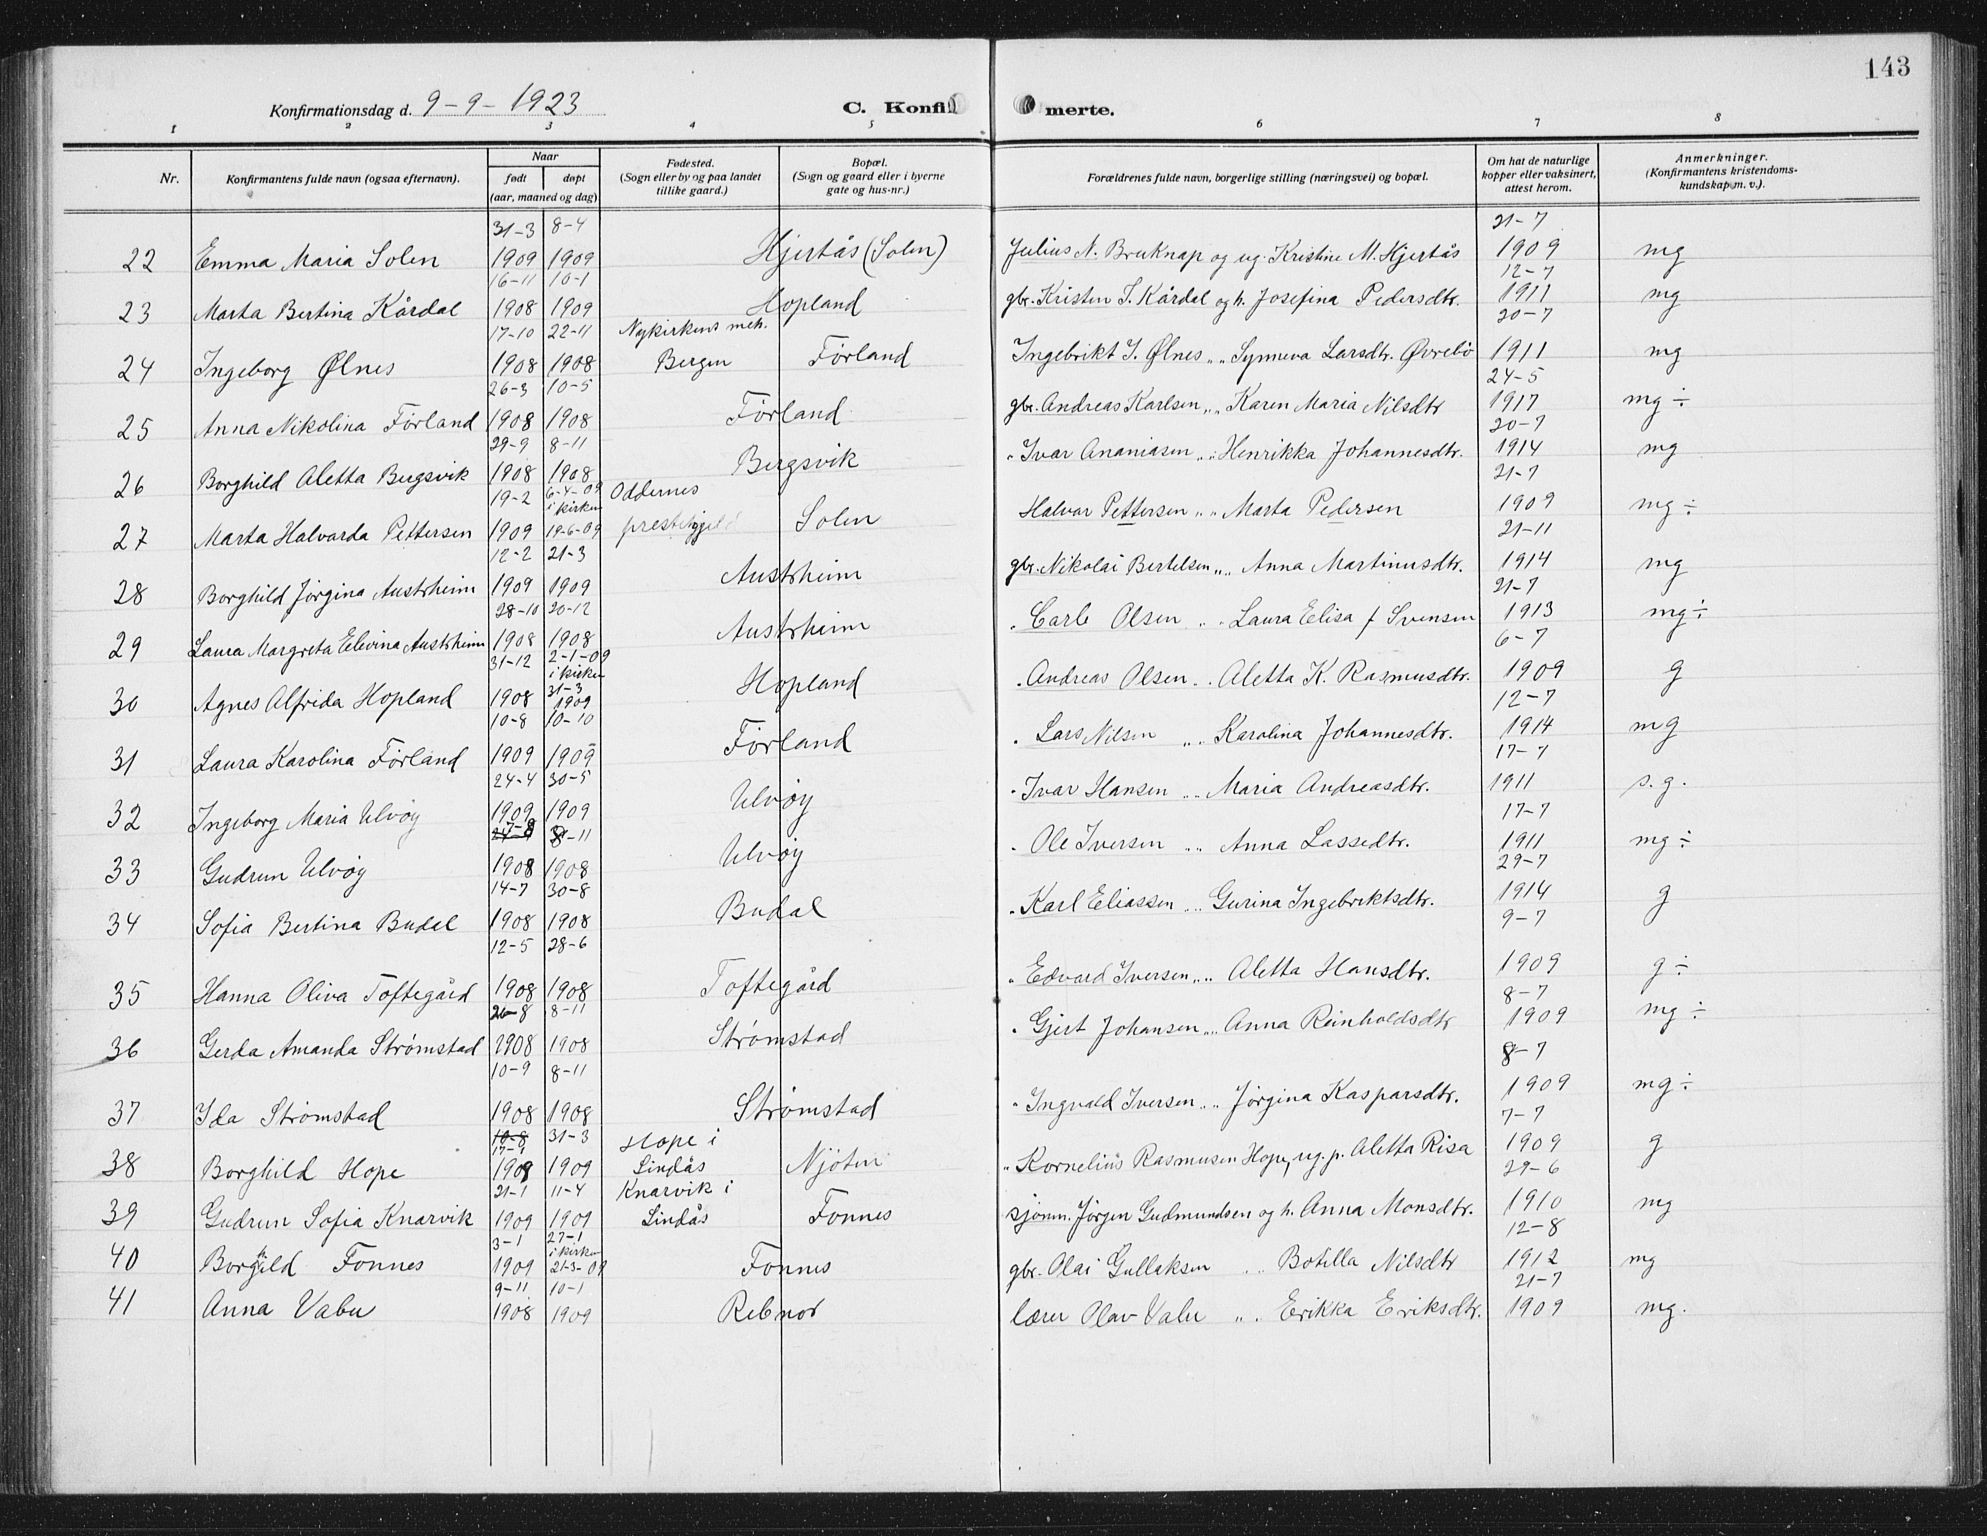 143
Konfirmationsdag d. 9-9-1923 C. Konfirmerte.
1 2 3 4 5 6 7 8
Nr. Konfirmantens fulde navn (ogsaa efternavn). Naar født døpt (aar, maaned og dag) Fødested. (Sogn eller by og paa landet tillike gaard.) Bopæl. (Sogn og gaard eller i byerne gate og hus-nr.) Forældrenes fulde navn, borgerlige stilling (næringsvei) og bopæl. Om hat de naturlige kopper eller vaksinert, attest herom. Anmerkninger. (Konfirmantens kristendomskundskap m. v.).
31-3 8-4 21-7
22 Emma Maria Solen 1909 1909 Hjertås (Solen) Julius N. Bruknap og ug. Kristine M. Hjertås 1909 mg
16-11 10-1 12-7
23 Marta Bertina Kårdal 1908 1909 Hopland gbr. Kristen S. Kårdal og h. Josefina Pedersdtr. 1911 mg
17-10 22-11 Nykirkens meh. 20-7
24 Ingeborg Ølnes 1908 1908 Bergen Førland Ingebrikt I. Ølnes „ „ Synneva Larsdtr. Øvrebø 1911 mg
26-3 10-5 24-5
25 Anna Nikolina Førland 1908 1908 Førland gbr. Andreas Karlsen „ „ Karen Maria Nilsdtr 1917 mg ÷
29-9 8-11 20-7
26 Borghild Aletta Bergsvik 1908 1908 Bergsvik „ Ivar Ananiasen „ „ Henrikka Johannesdtr. 1914 mg
19-2 6-4-09 i kirken Oddernes 21-7
27 Marta Halvarda Pettersen 1909 19-6-09 prestegjeld Solen Halvor Pettersen „ „ Marta Pedersen 1909 mg ÷
12-2 21-3 21-11
28 Borghild Jørgina Austrheim 1909 1909 Austrheim gbr. Nikolai Bertelsen „ „ Anna Martinusdtr. 1914 mg
28-10 20-12 21-7
29 Laura Margreta Elevina Austrheim 1908 1908 Austrheim „ Carl Olsen „ „ Laura Elisa f Svensen 1913 mg ÷
31-12 2-1-09 i kirken 31-3 6-7
30 Agnes Alfrida Hopland 1908 1909 Hopland „ Andreas Olsen „ „ Aletta K. Rasmusdtr. 1909 g
10-8 10-10 12-7
31 Laura Karolina Førland 1909 1909 Førland „ Lars Nilsen „ „ Karolina Johannesdtr. 1914 mg
24-4 30-5 17-7
32 Ingeborg Maria Ulvøy 1909 1909 Ulvøy „ Ivar Hansen „ „ Maria Andreasdtr. 1911 s.g.
8-11 17-7
33 Gudrun Ulvøy 1908 1908 Ulvøy „ Ole Iversen „ „ Anna Lassedtr. 1911 mg ÷
14-7 30-8 29-7
34 Sofia Bertina Budal 1908 1908 Budal „ Karl Eliassen „ „ Gurina Ingebriktsdtr. 1914 g
12-5 28-6 9-7
35 Hanna Oliva Toftegård 1908 1908 Toftegård „ Edvard Iversen „ „ Aletta Hansdtr. 1909 g ÷
26-8 8-11 8-7
36 Gerda Amanda Strømstad 1908 1908 Strømstad „ Gjert Johansen „ „ Anna Reinholdsdtr 1909 mg ÷
10-9 8-11 8-7
37 Ida Strømstad 1908 1908 Strømstad „ Ingvald Iversen „ „ Jørgina Kasparsdtr. 1909 mg ÷
10-8 31-3 Hope i 7-7
38 Borghild Hope 1909 1909 Lindås Njøten „ Kornelius Rasmusen Hope, ug. p. Aletta Risa 1909 g
21-1 11-4 Knarvik i 29-6
39 Gudrun Sofia Knarvik 1909 1909 Lindås Fonnes sjømm. Jørgen Gudmundsen og h. Anna Monsdtr. 1910 mg
3-1 27-1 i kirken 12-8
40 Borghild Fonnes 1909 21-3-09 Fonnes gbr. Olai Gullaksen „ „ Botilla Nilsdtr 1912 mg
9-11 10-1 21-7
41 Anna Vabu 1908 1909 Rebnor lærer Olav Vabu „ „ Erikka Eriksdtr. 1909 mg.